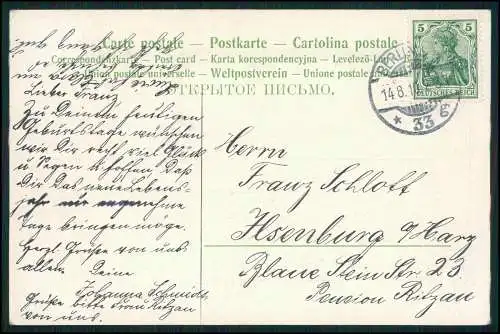 Carte postale – Postkarte – Cartolina postale
Correspondenzkarte – Post card – Karta korespondencyjna – Levelező-L
Union postale universelle – Weltpostverein – Unione postale
ОТКРЫТОЕ ПИСЬМО.
5 5
DEUTSCHES REICH
14.8.1
* 33 g
Lieber Franz
Zu Deinem heutigen
Geburtstage wünschen
wir Dir recht viel Glück
u Segen u hoffen, daß
Dir das neue Lebens-
jahr nur angenehme
Tage bringen möge.
Herzl Grüße von uns
allen. Deine
Johanna Schmidt,
Grüße bitte Frau Ritzau
von uns.
Herrn
Franz Schloff
Ilsenburg a/Harz
Blaue Stein Str 23
Pension Ritzau